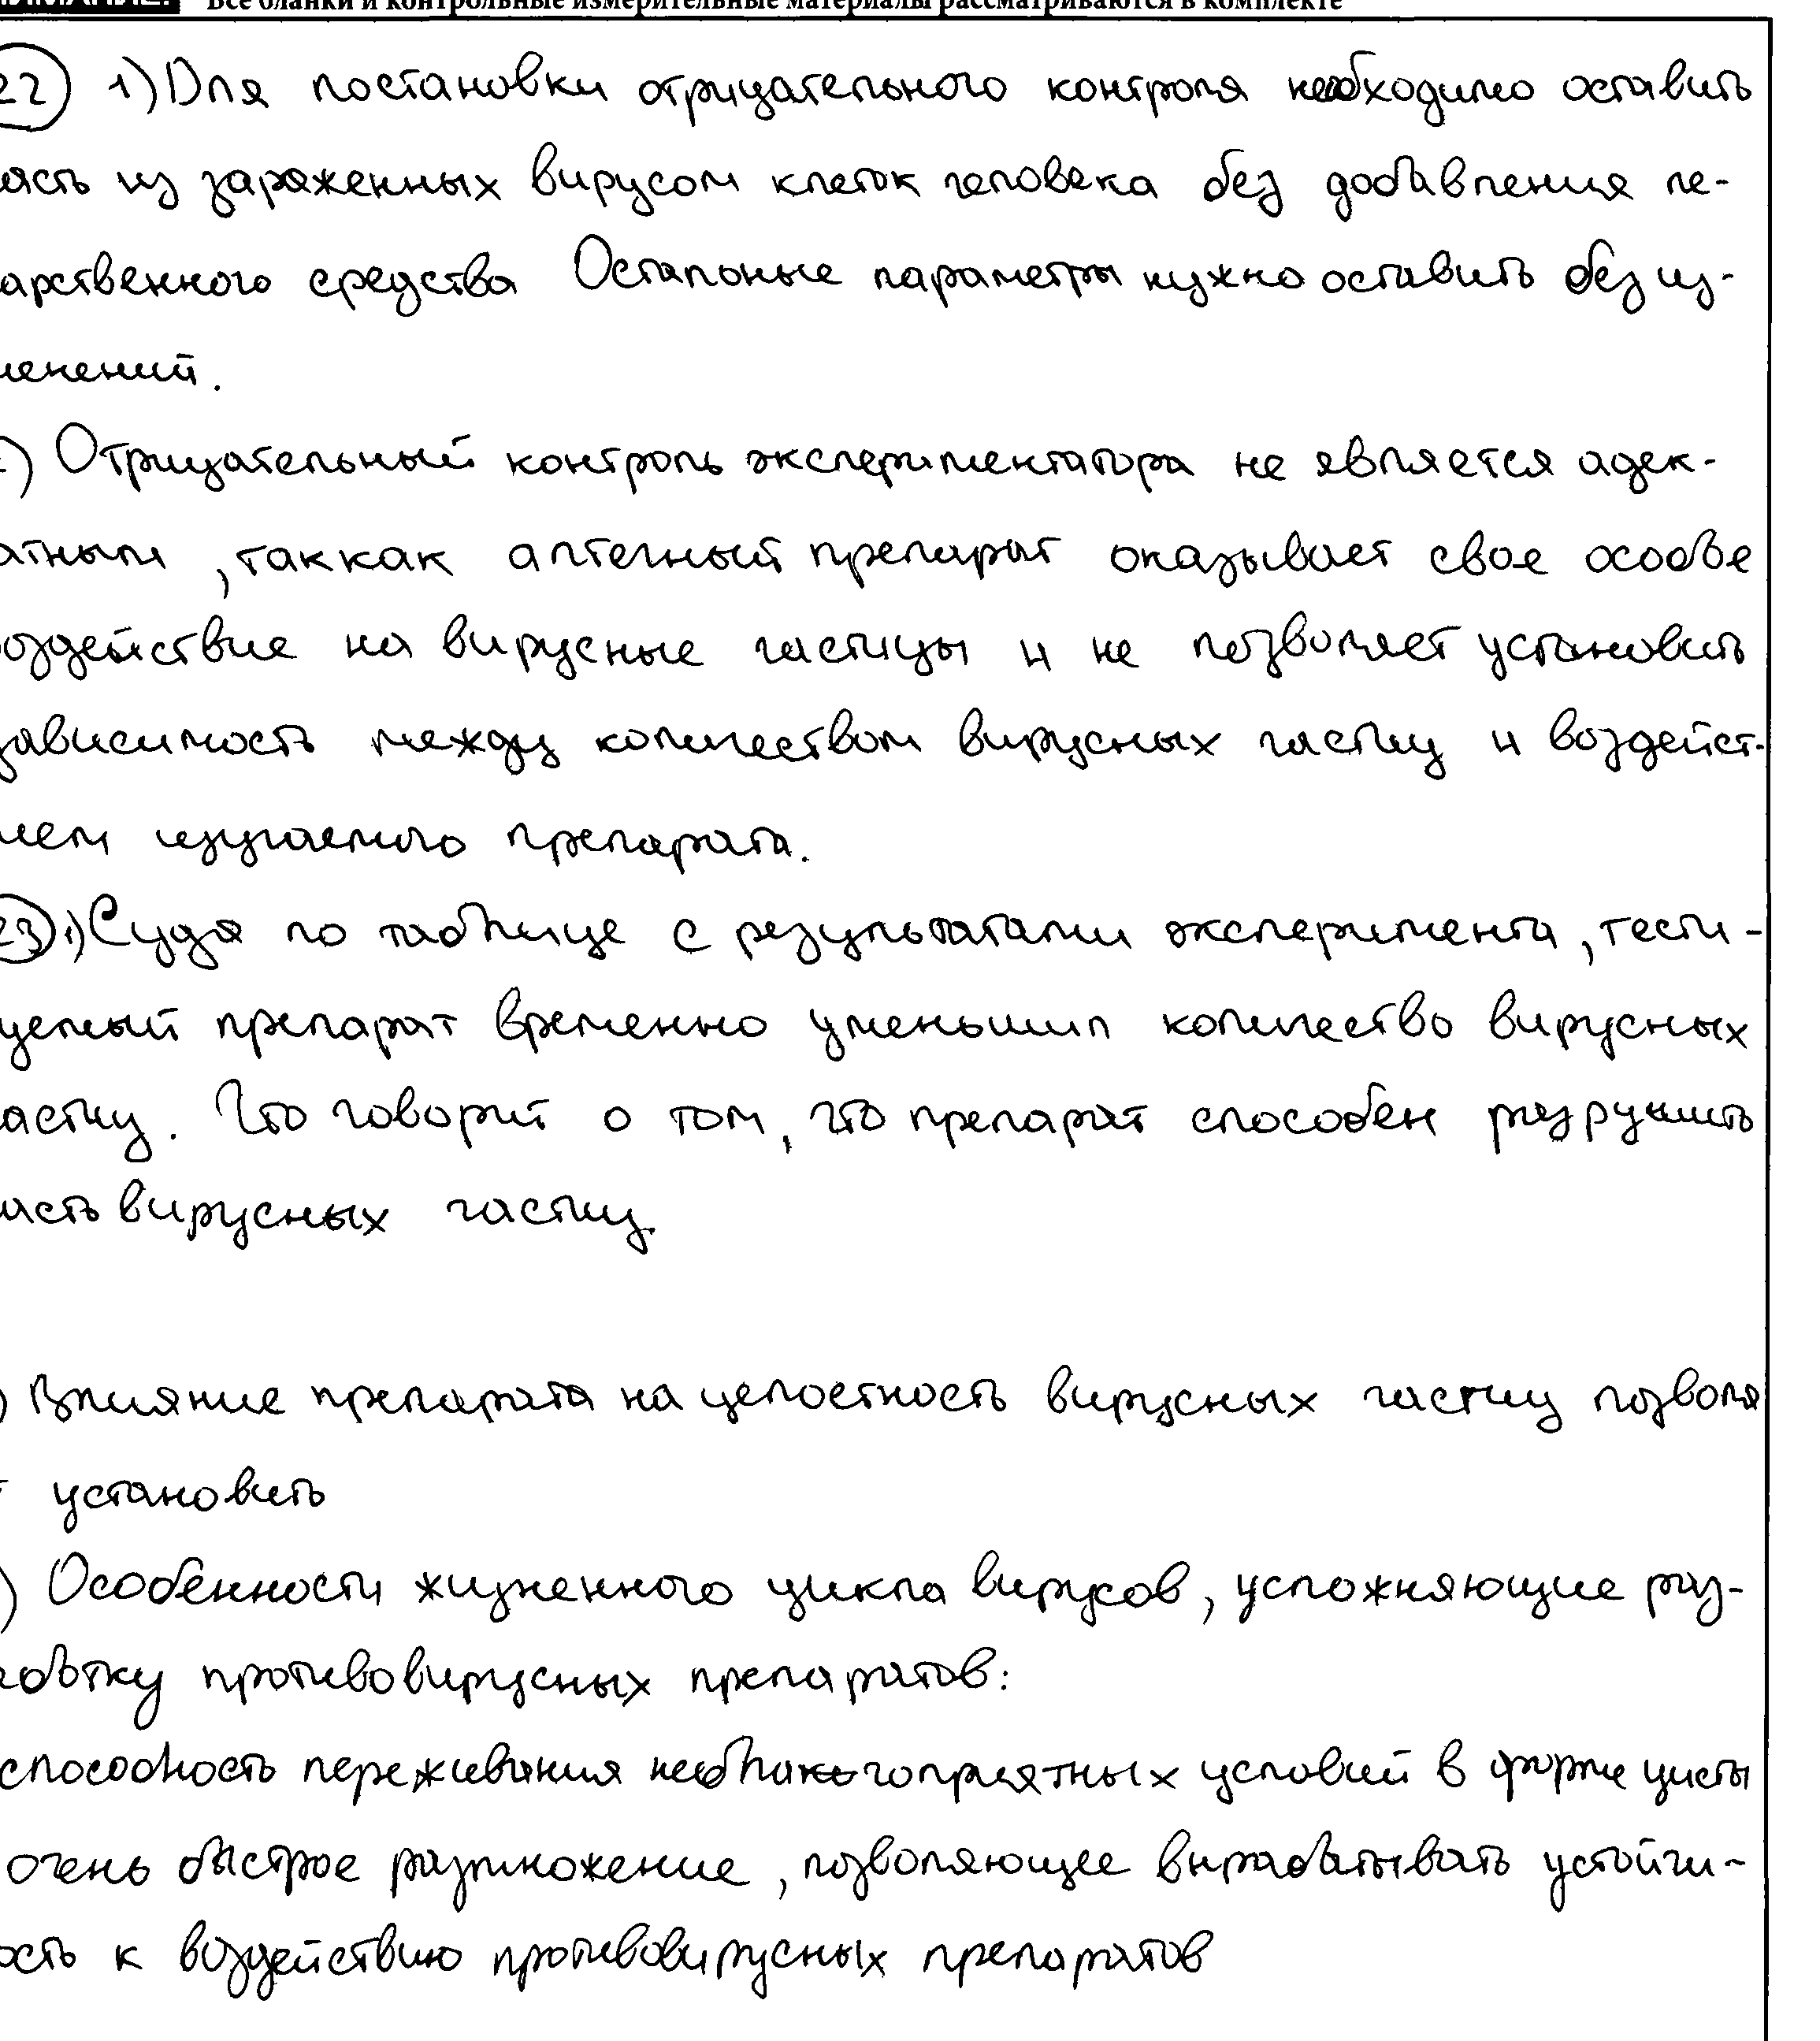 Все бланки и контрольные измерительные материалы рассматриваются в комплекте
22) 1) Для постановки отрицательного контроля необходимо оставить
асть из зараженных вирусом клеток человека без добавления ле-
арственного средства Остальные параметры нужно оставить без из-
менений.
) Отрицательный контроль экспериментатора не является адек-
атным, так как аптечный препарат оказывает свое особое
оздействие на вирусные частицы и не позволяет установить
зависимость между количеством вирусных частиц и воздейст-
ием изучаемого препарата.
23) 1) Судя по таблице с результатами эксперимента, тести-
уемый препарат временно уменьшил количество вирусных
частиц. Что говорит о том, что препарат способен разрушить
часть вирусных частиц.
) Влияние препарата на целостность вирусных частиц позволя
т установить
) Особенности жизненного цикла вирусов, усложняющие раз-
аботку противовирусных препаратов:
способность переживания неблагоприятных условий в форме цисты
очень быстрое размножение, позволяющее вырабатывать устойчи-
ость к воздействию противовирусных препаратов